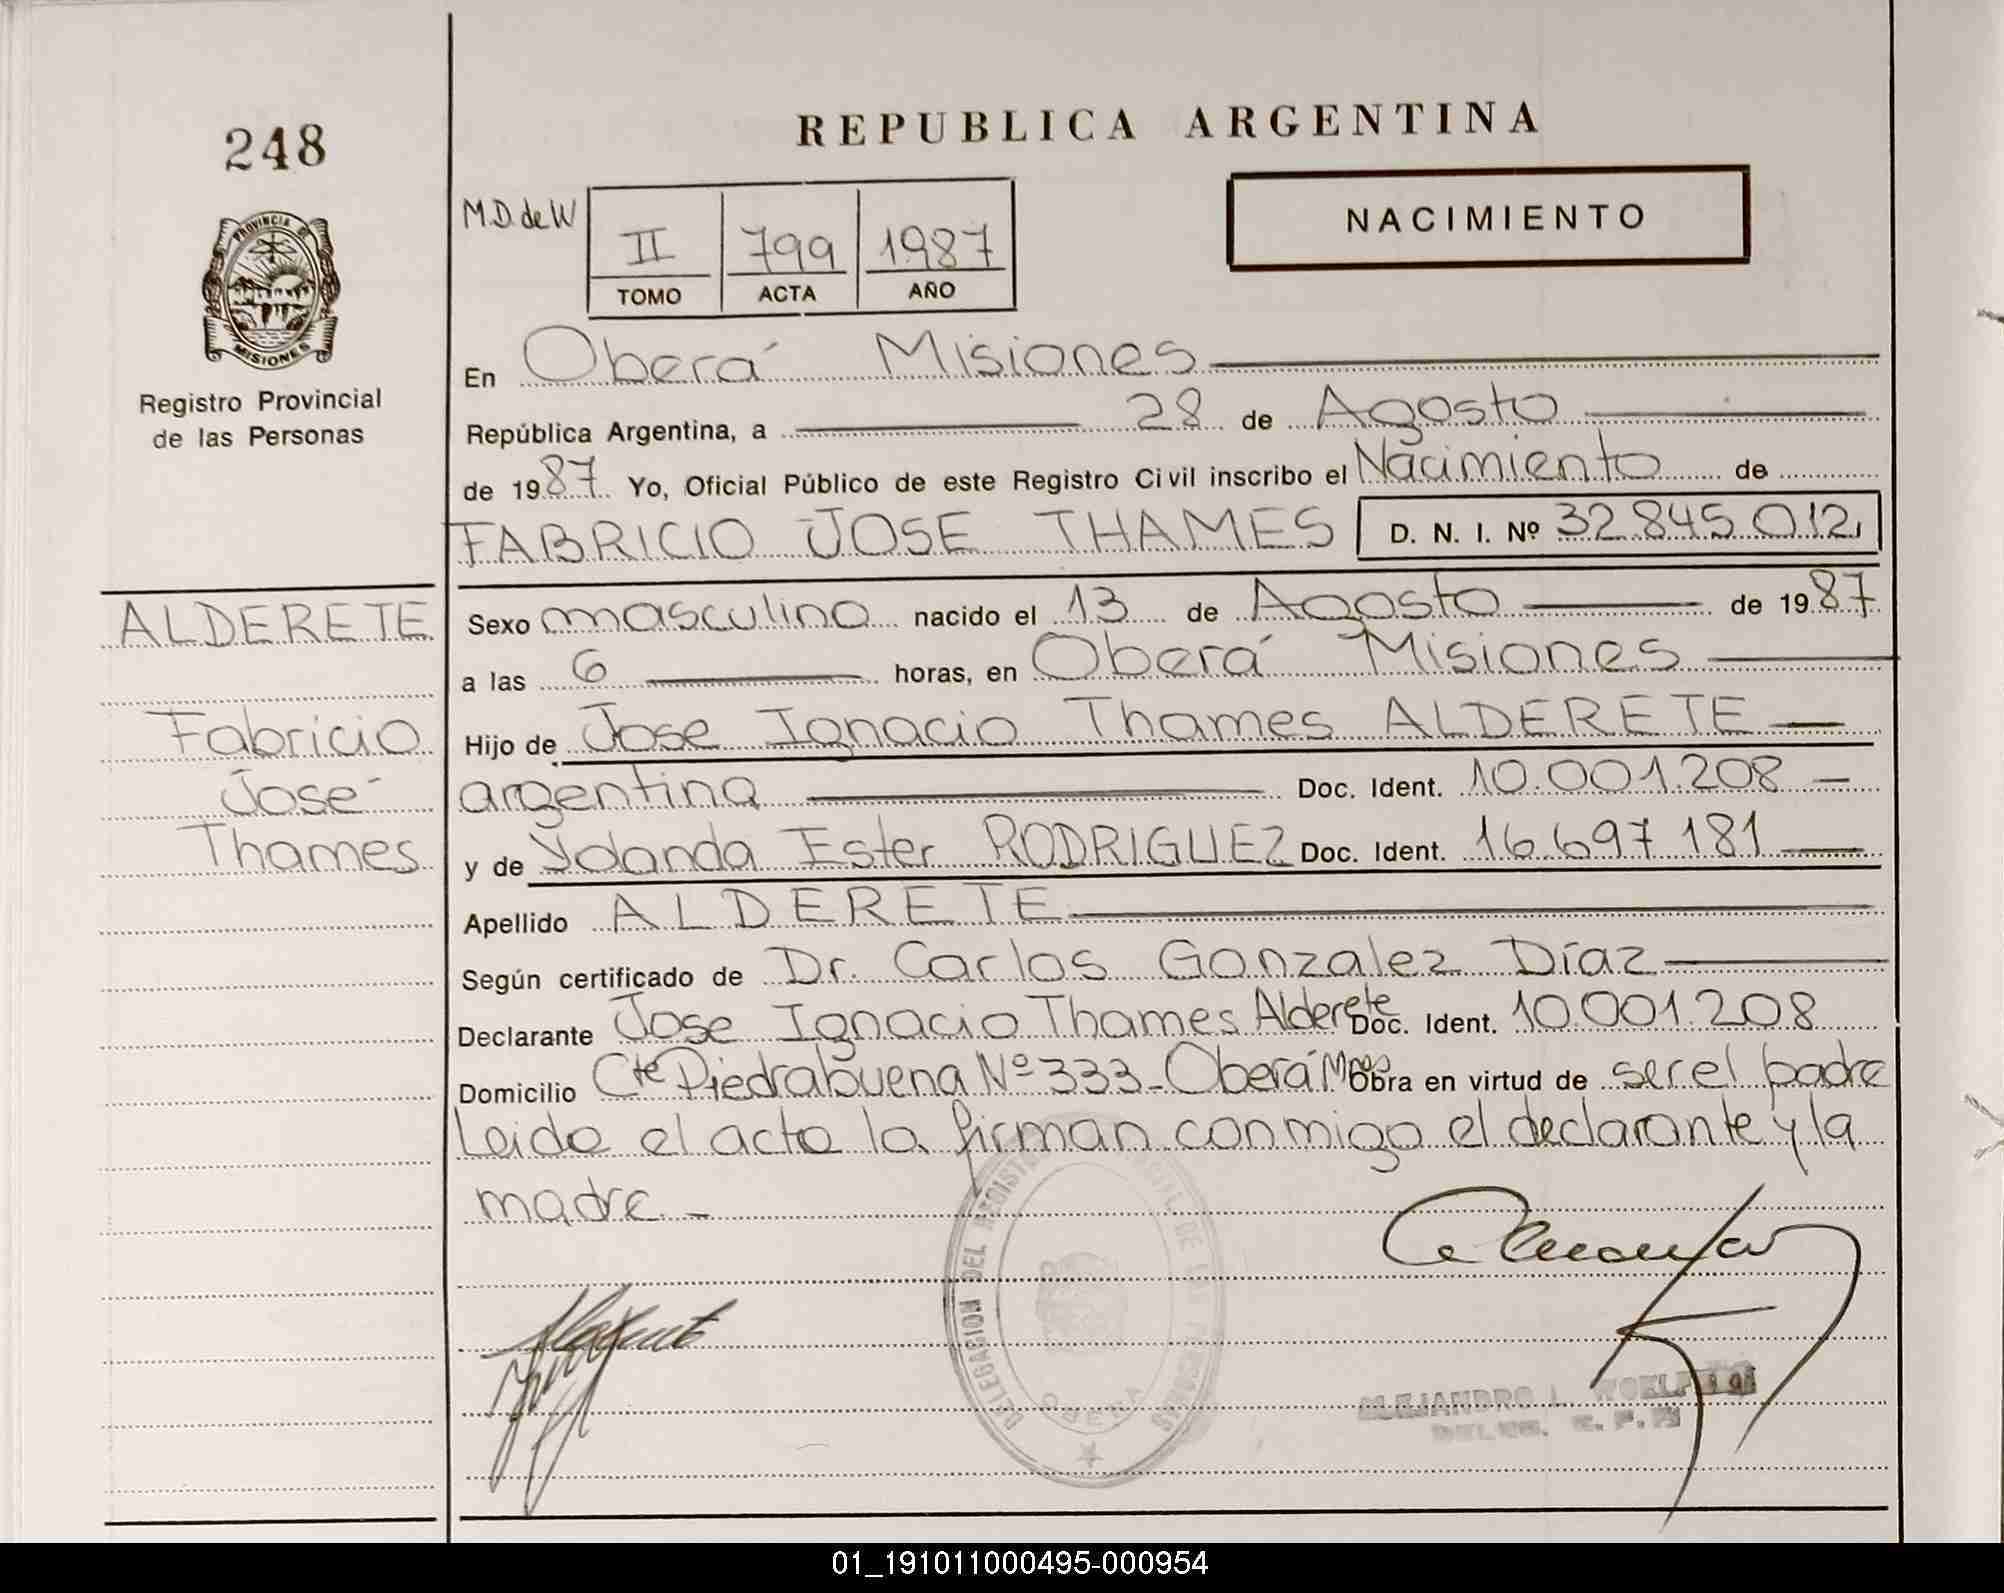 248
PROVINCIA DE
MISIONES
Registro Provincial
de las Personas
ALDERETE
Fabricio
José
Thames
REPUBLICA ARGENTINA
M.D. de W
II 799 1987
TOMO ACTA AÑO
NACIMIENTO
En Oberá Misiones
República Argentina, a 28 de Agosto
de 1987. Yo, Oficial Público de este Registro Civil inscribo el Nacimiento de
FABRICIO JOSE THAMES D. N. I. Nº 32.845.012,
Sexo masculino nacido el 13 de Agosto de 1987
a las 6 horas, en Oberá Misiones
Hijo de Jose Ignacio Thames ALDERETE
argentina Doc. Ident. 10.001.208
y de Yolanda Ester RODRIGUEZ Doc. Ident. 16.697.181
Apellido ALDERETE
Según certificado de Dr. Carlos Gonzalez Díaz
Declarante Jose Ignacio Thames Alderete Doc. Ident. 10.001.208
Domicilio Cte Piedrabuena Nº 333 - Oberá Mnes Obra en virtud de ser el padre
Leida el acta la firman conmigo el declarante y la
madre. -
DELEGACION DEL REGISTRO DE LAS PERSONAS
OBERA
ALEJANDRO L.
01_191011000495-000954